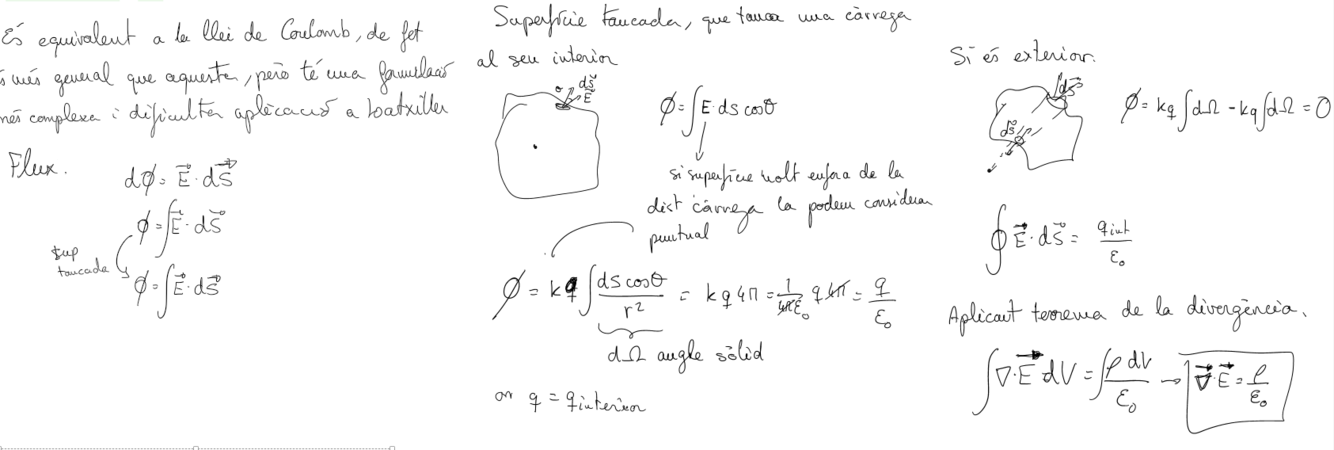 És equivalent a la llei de Coulomb, de fet
és més general que aquesta, però té una formulació
més complexa i dificulta aplicació a batxiller
Flux.
dϕ = E⃗ · dS⃗
ϕ = ∫ E⃗ · dS⃗
sup
tancada
ϕ = ∫ E⃗ · dS⃗
Superfície tancada, que tanca una càrrega
al seu interior
θ dS⃗
E⃗
ϕ = ∫ E · ds cosθ
si superfície molt enfora de la
dist càrrega la podem considerar
puntual
ϕ = kq ∫ ds cosθ / r² = kq 4π = 1/(4πε₀) q 4π = q/ε₀
dΩ angle sòlid
on q = q interior
Si és exterior.
dS⃗
dS⃗
ϕ = kq ∫ dΩ - kq ∫ dΩ = 0
∮ E⃗ · dS⃗ = q int / ε₀
Aplicant teorema de la divergència.
∫ ∇ · E⃗ dV = ∫ ρ dV / ε₀ → ∇⃗ · E⃗ = ρ/ε₀